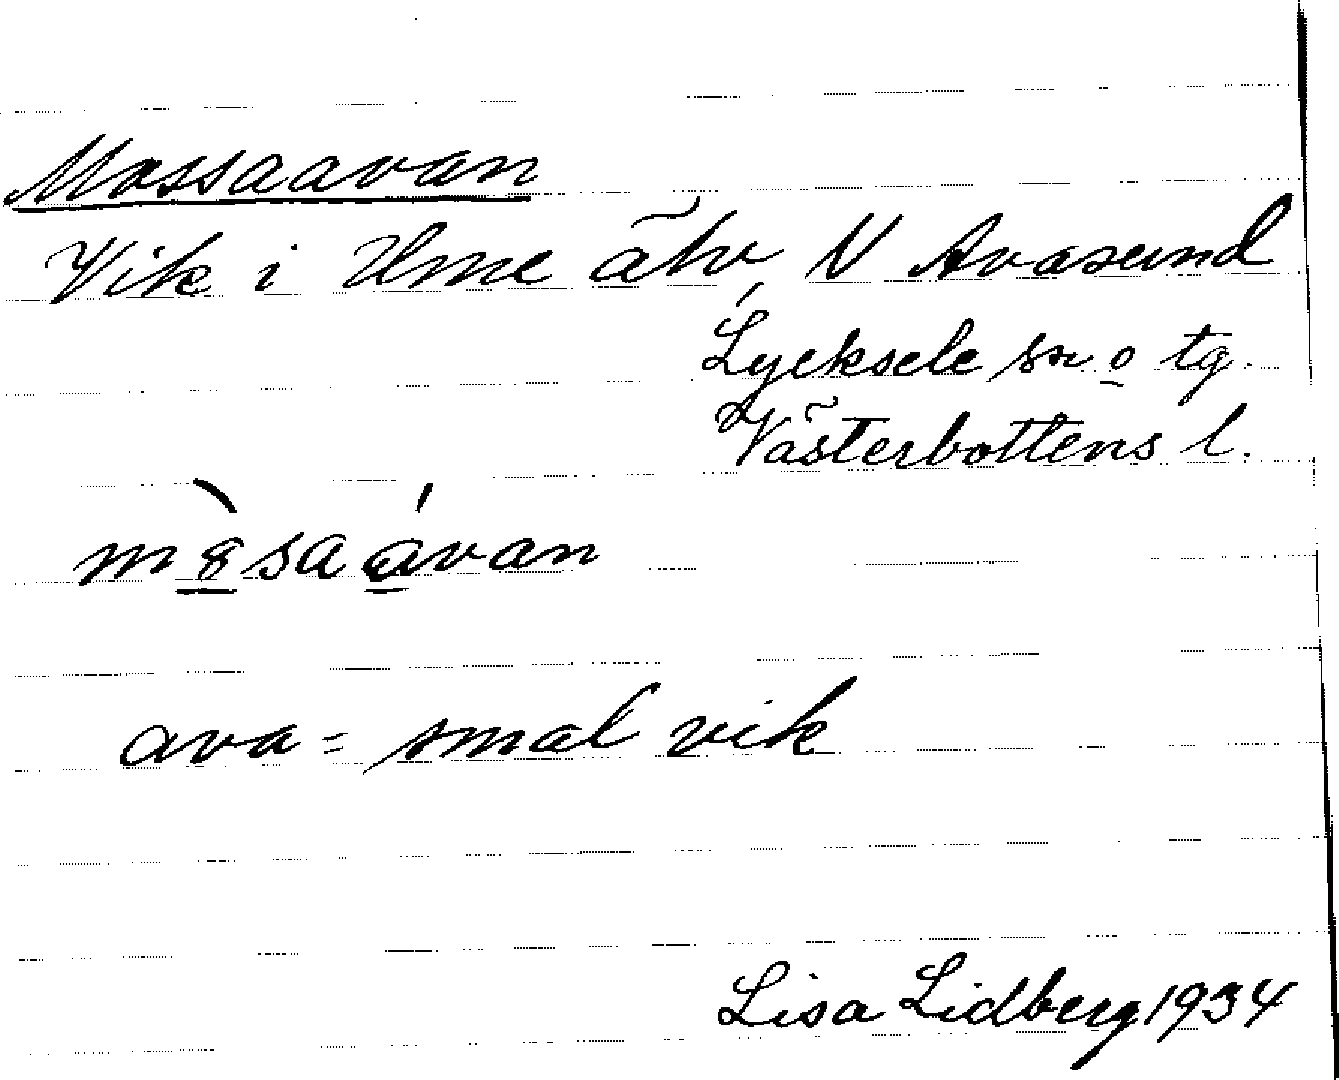 Mossaavan
Vik i Ume älv, N Avasund
Lycksele sn o tg.
Västerbottens l.
m8saavan
ava = smal vik
Lisa Lidberg 1934